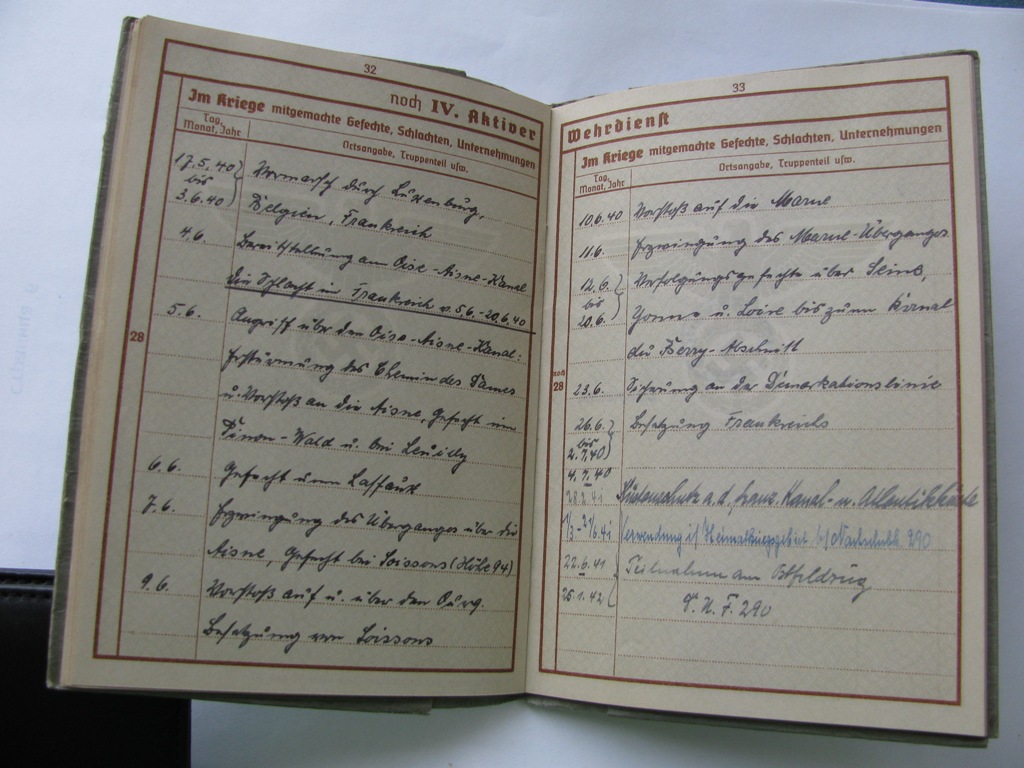 32
noch IV. Aktiver
Im Kriege mitgemachte Gefechte, Schlachten, Unternehmungen
Tag, Monat, Jahr
Ortsangabe, Truppenteil usw.
28
17.5.40 Vormarsch durch Luxenburg,
bis
3.6.40 Belgien, Frankreich
4.6. Bereitstellung am Oise-Aisne-Kanal
Die Schlacht in Frankreich v. 5.6.-20.6.40
5.6. Angriff über den Oise-Aisne-Kanal:
Erstürmung des Chemin des Dames
u. Vorstoß an die Aisne, Gefecht im
Wald u. bei
6.6. Gefecht um Laffaux
7.6. Erzwingung des Überganges über die
Aisne, Gefecht bei Soissons (Höhe 94)
9.6. Vorstoß auf u. über den Ourq.
Besatzung von Soissons
33
Wehrdienst
Im Kriege mitgemachte Gefechte, Schlachten, Unternehmungen
Tag, Monat, Jahr
Ortsangabe, Truppenteil usw.
noch 28
10.6.40 Vorstoß auf die Marne
11.6. Erzwingung des Marne-Überganges
12.6. Verfolgungsgefechte über Seine,
bis
20.6. Yonne u. Loire bis zum Kanal
du Berry-Abschnitt
23.6. Sicherung an der Demarkationslinie
26.6. Besatzung Frankreichs
bis
2.7.40
4.7.40
28.2.41 Küstenschutz a.d. franz. Kanal- u. Atlantikküste
1/3-21/6.41 Verwendung i/ Heimatkriegsgebiet b/ Nachschubk. 290
22.6.41 Teilnahme am Ostfeldzug
25.1.42 290